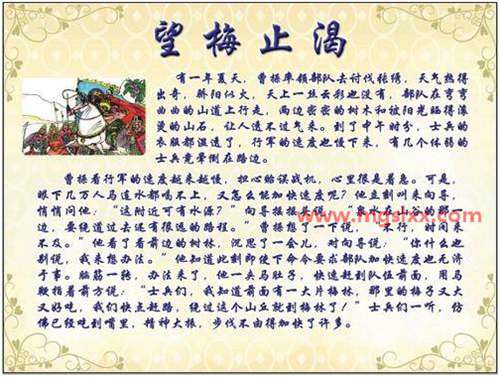 望梅止渴
有一年夏天，曹操率领部队去讨伐张绣，天气热得
出奇，骄阳似火，天上一丝云彩也没有，部队在弯弯
曲曲的山道上行走，两边密密的树木和被阳光晒得滚
烫的山石，让人透不过气来。到了中午时分，士兵的
衣服都湿透了，行军的速度也慢下来，有几个体弱的
士兵竟晕倒在路边。
曹操看行军的速度越来越慢，担心贻误战机，心里很是着急。可是，
眼下几万人马连水都喝不上，又怎么能加快速度呢？他立刻叫来向导，
悄悄问他：“这附近可有水源？”向导摇摇头说：“泉水在山谷的那一
边，要绕道过去还有很远的路程。”曹操想了一下说，“不行，时间来
不及。”他看了看前边的树林，沉思了一会儿，对向导说：“你什么也
别说，我来想办法。”他知道此刻即使下命令要求部队加快速度也无济
于事。脑筋一转，办法来了，他一夹马肚子，快速赶到队伍前面，用马
鞭指着前方说：“士兵们，我知道前面有一大片梅林，那里的梅子又大
又好吃，我们快点赶路，绕过这个山丘就到梅林了！”士兵们一听，仿
佛已经吃到嘴里，精神大振，步伐不由得加快了许多。
www.mgslxx.com